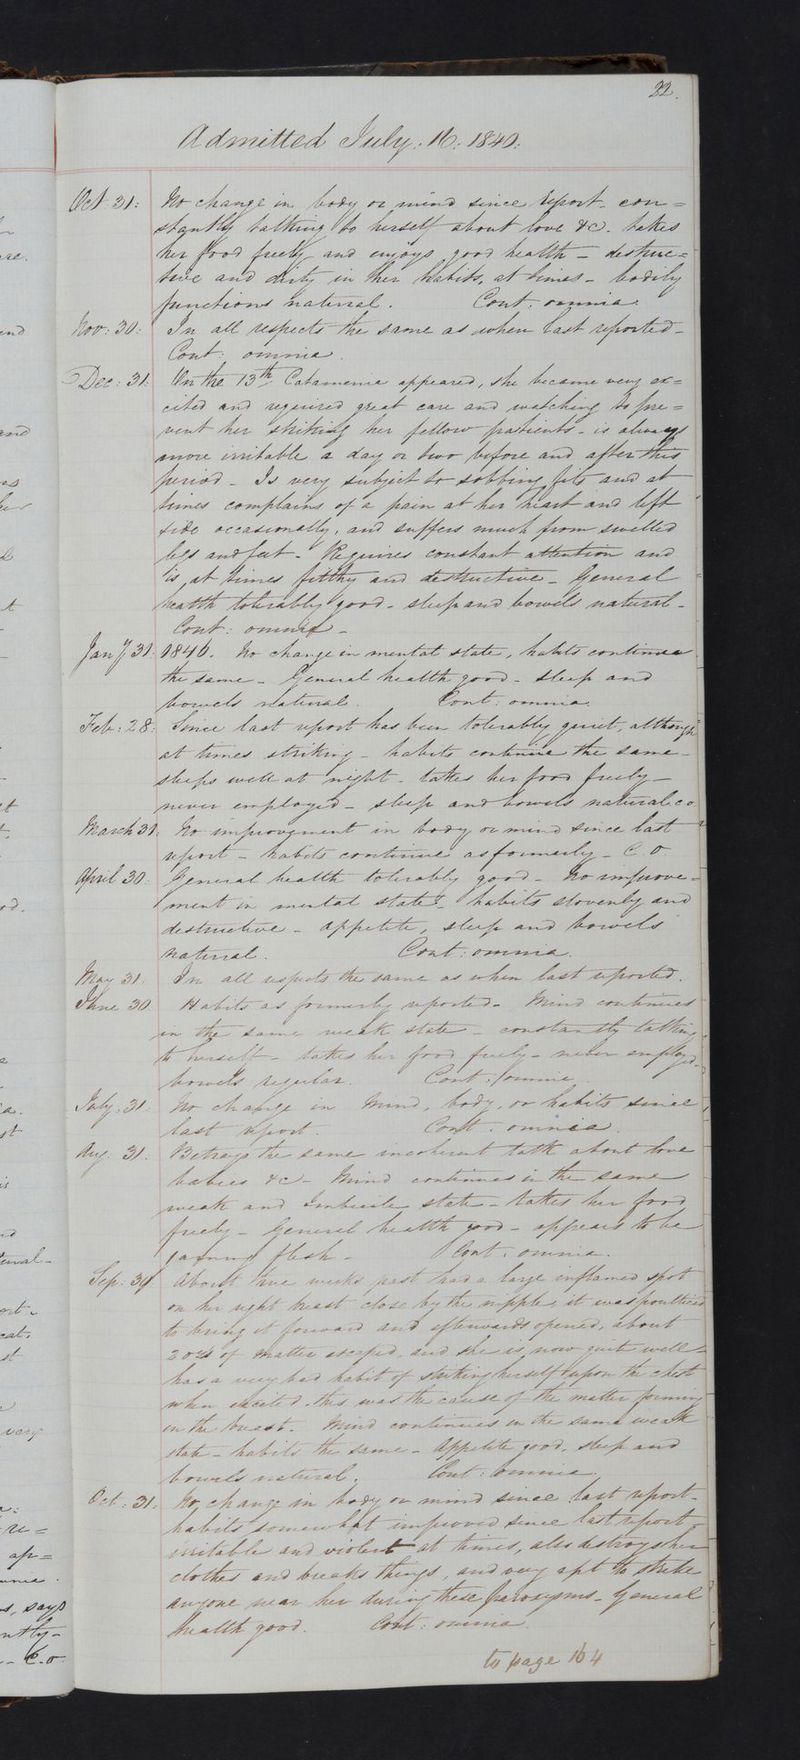 22.
Admitted July. 16. 1840.
Oct. 31: No change in body or mind since report. con=
stantly talking to herself about love &c. takes
her food freely and enjoys good health – destruc=
tive and dirty in her habits, at times – bodily
functions natural. Cont. omnia.
Nov: 30: In all respects the same as when last reported –
Cont: omnia.
Dec: 31: On the 13th Catamenia appeared, she became very ex=
cited and required great care and watching to pre=
vent her striking her fellow patients – is always
more irritable a day or two before and after this
period – Is very subject to sobbing fits and at
times complains of a pain at her heart and left
side occasionally, and suffers much from swelled
legs and feet – Requires constant attention and
is, at times filthy and destructive – General
health tolerably good – sleep and bowels natural –
Cont: omnia –
Jany 31: No change in mental state, habits continue
the same – General health good – sleep and
bowels natural. Cont: omnia.
Feb: 28: Since last report has been tolerably quiet, although
at times striking – habits continue the same –
sleeps well at night – takes her food freely –
never employed – sleep and bowels natural. c o
March 31. No improvement in body or mind since last
report – habits continue as formerly – C. O
April 30. General health tolerably good – No improve=
ment in mental state – habits slovenly and
destructive – appetite, sleep and bowels
natural. Cont: omnia.
May 31. In all respects the same as when last reported.
June 30 Habits as formerly reported – Mind continues
in the same weak state – constantly talking
to herself – takes her food freely – never employed –
bowels regular. Cont: omnia
July. 31. No change in mind, body, or habits since
last report. Cont. omnia.
Aug. 31. Betrays the same incoherent talk about love
babies &c – Mind continues in the same
weak and imbecile state – takes her food
freely – General health good – appears to be
gaining flesh – Cont. omnia.
Sep. 30 About three weeks past had a large inflamed spot
on her right breast close by the nipple, it was poulticed
to bring it forward and afterwards opened, about
of matter escaped, and she is now quite well –
has a very bad habit of striking herself upon the chest
when excited. this was the cause of the matter forming
in the breast. Mind continues in the same weak
state – habits the same – Appetite good, sleep and
bowels natural. Cont: omnia.
Oct. 31. No change in body or mind since last report –
habits somewhat improved since last report –
irritable and violent at times, also destroys her
clothes and breaks things, and very apt to strike
anyone near her during these paroxysms – General
health good. Cont: omnia
to page 164